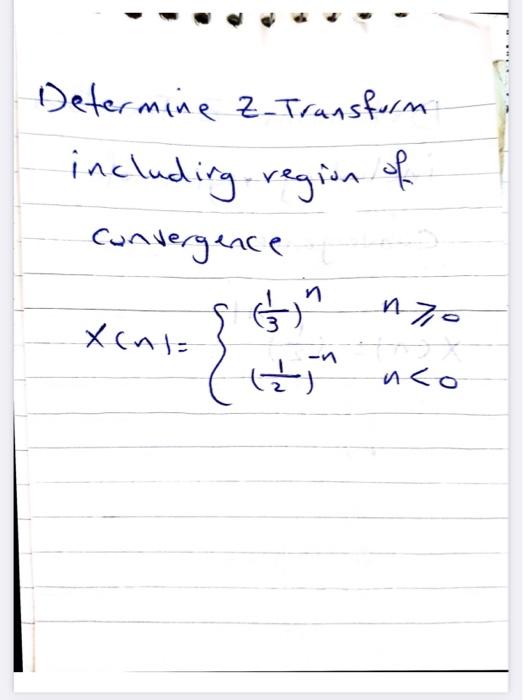 Determine Z-Transform
including region of
convergence
x(n)= { (1/3)^n n≥0
(1/2)^-n n<0